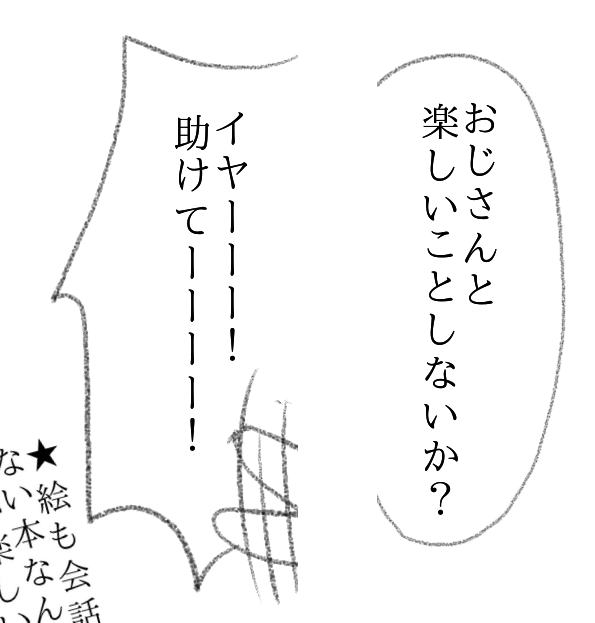 おじさんと
楽しいことしないか？
イヤーーー！
助けてーーーー！
★絵本なん
も会話